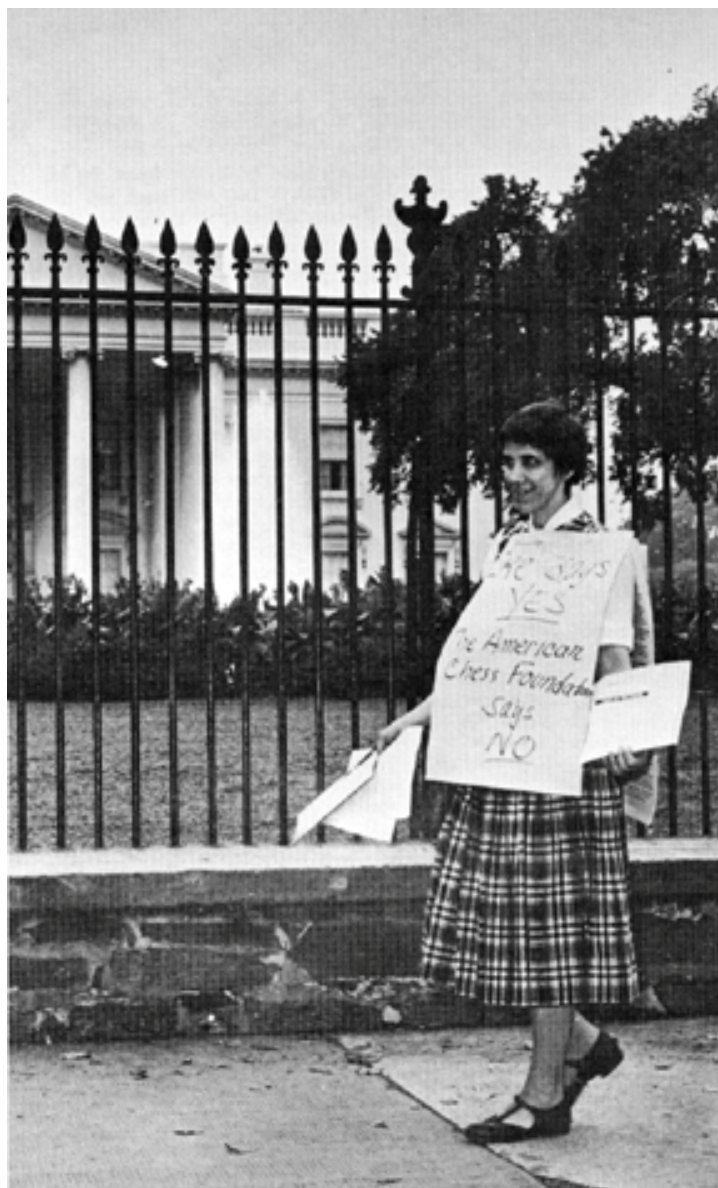 Ike says
YES
The American
Chess Foundation
says
NO